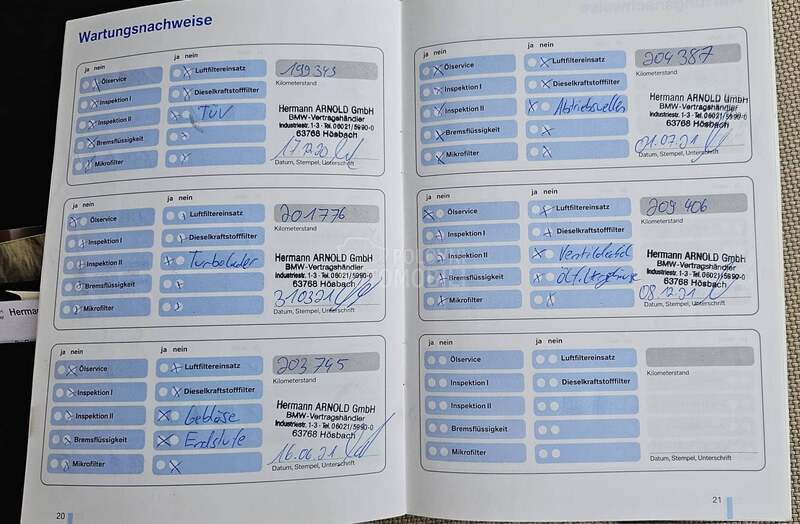 Wartungsnachweise
ja nein
ja nein
Ölservice
Luftfiltereinsatz
199343
Kilometerstand
Inspektion I
Dieselkraftstofffilter
Inspektion II
TÜV
Hermann ARNOLD GmbH
BMW-Vertragshändler
Industriestr. 1-3 · Tel. 06021/5990-0
63768 Hösbach
Bremsflüssigkeit
Mikrofilter
17.12.20
Datum, Stempel, Unterschrift
ja nein
ja nein
Ölservice
Luftfiltereinsatz
201776
Kilometerstand
Inspektion I
Dieselkraftstofffilter
Inspektion II
Turbolader
Hermann ARNOLD GmbH
BMW-Vertragshändler
Industriestr. 1-3 · Tel. 06021/5990-0
63768 Hösbach
Bremsflüssigkeit
Mikrofilter
310321
Datum, Stempel, Unterschrift
ja nein
ja nein
Ölservice
Luftfiltereinsatz
203745
Kilometerstand
Inspektion I
Dieselkraftstofffilter
Inspektion II
Gebläse
Hermann ARNOLD GmbH
BMW-Vertragshändler
Industriestr. 1-3 · Tel. 06021/5990-0
63768 Hösbach
Bremsflüssigkeit
Endstufe
Mikrofilter
16.06.21
Datum, Stempel, Unterschrift
20
ja nein
ja nein
Ölservice
Luftfiltereinsatz
204387
Kilometerstand
Inspektion I
Dieselkraftstofffilter
Inspektion II
Abtriebswellen
Hermann ARNOLD GmbH
BMW-Vertragshändler
Industriestr. 1-3 · Tel. 06021/5990-0
63768 Hösbach
Bremsflüssigkeit
Mikrofilter
01.07.21
Datum, Stempel, Unterschrift
ja nein
ja nein
Ölservice
Luftfiltereinsatz
209406
Kilometerstand
Inspektion I
Dieselkraftstofffilter
Inspektion II
Hermann ARNOLD GmbH
BMW-Vertragshändler
Industriestr. 1-3 · Tel. 06021/5990-0
63768 Hösbach
Bremsflüssigkeit
Mikrofilter
08.12.21
Datum, Stempel, Unterschrift
ja nein
ja nein
Ölservice
Luftfiltereinsatz
Kilometerstand
Inspektion I
Dieselkraftstofffilter
Inspektion II
Bremsflüssigkeit
Mikrofilter
Datum, Stempel, Unterschrift
21
Hermann